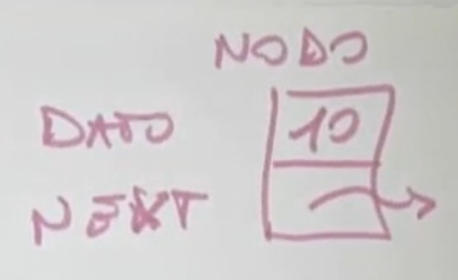 NODO
DATO 10
NEXT